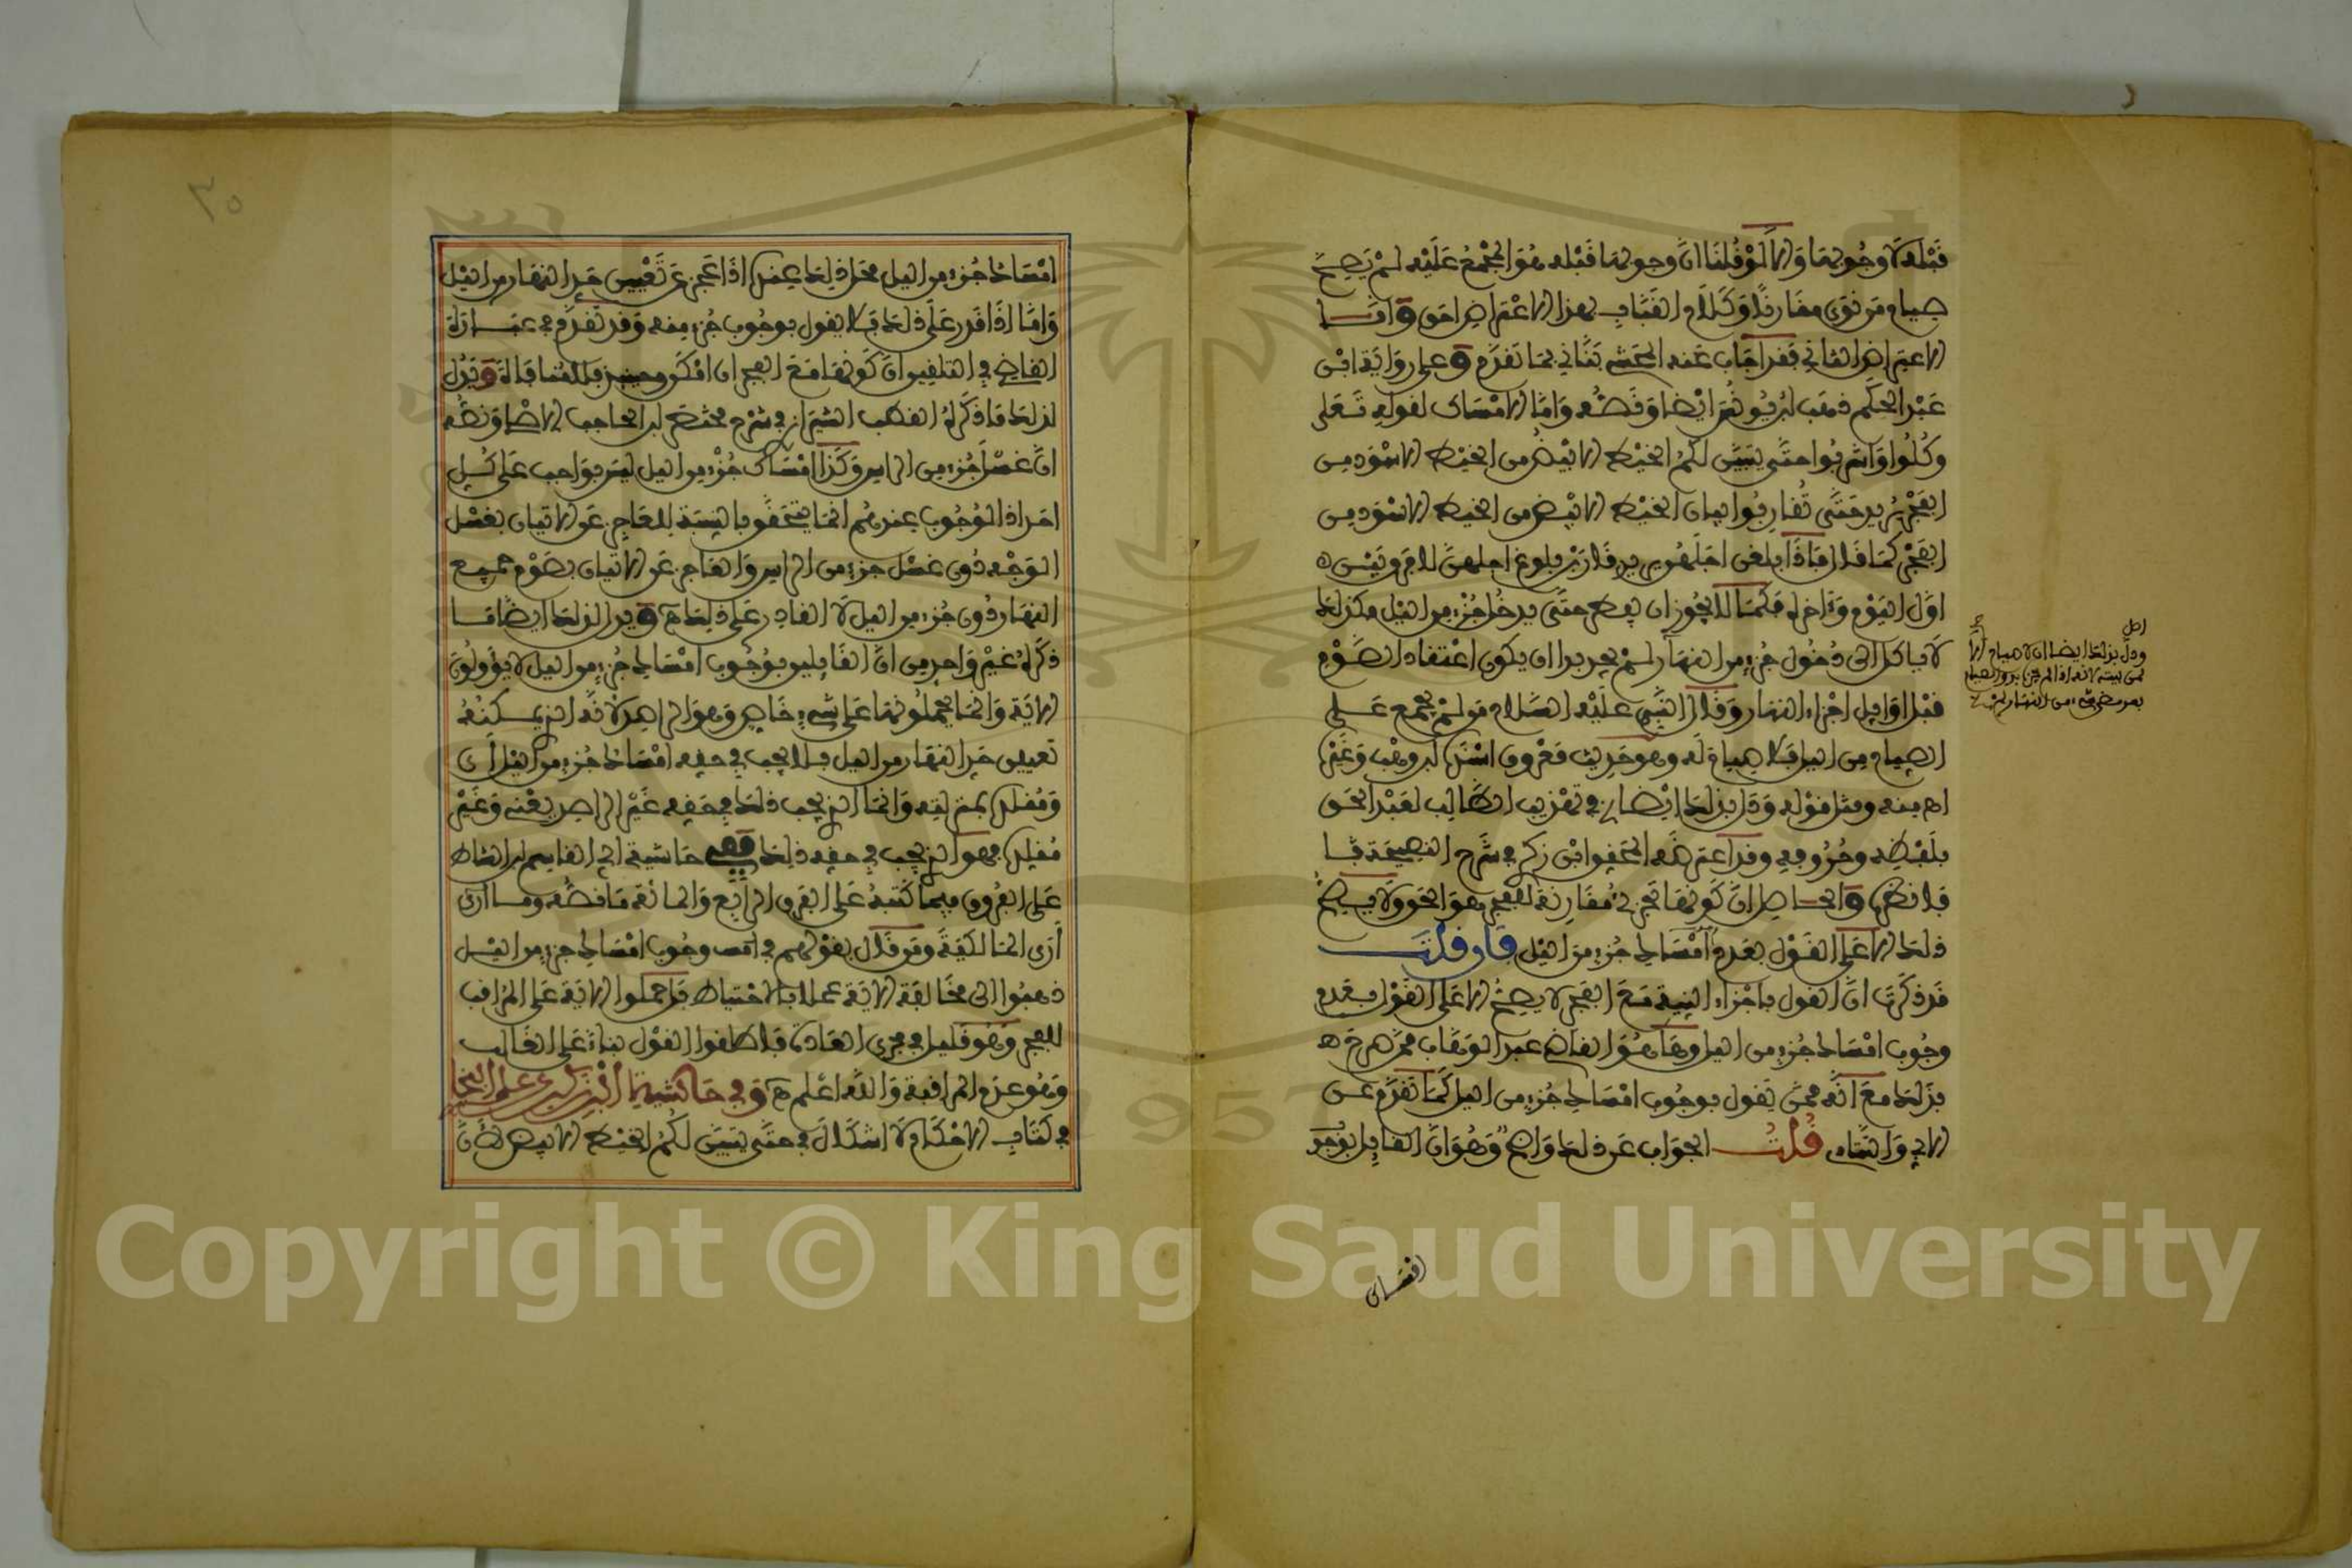 قبله لا وجوبها وإلا لو قلنا ان وجوبها قبله هو المجمع عليه لم يصح
صيام من نوى مقارنا وكلام القباب بهذا الاعتراض احق واما
الاعتراض الثاني فقد اجاب عنه المحشي بناني بما تقدم وعلى رواية ابن
عبد الحكم ذهب ابن يونس ايضا ونصه واما الامساك لقوله تعلى
وكلوا واشربوا حتى يتبين لكم الخيط الابيض من الخيط الاسود من
الفجر يريد حتى تقاربوا بيان الخيط الابيض من الخيط الاسود من
الفجر كما قال فاذا بلغن اجلهن يريد قاربن بلوغ اجلهن لا فرق بين
اول اليوم وءاخره فكما لا يجوز ان يفطر حتى يدخل جزء من الليل فكذلك
لا ياكل الى دخول جزء من النهار لم يجد بدا ان يكون اعتقاد الصوم
قبل اوايل اجزاء النهار وقال النبي عليه السلام من لم يجمع على
الصيام من الليل فلا صيام له وهو حديث معروف اسنده ابن وهب وغيره
اه منه ومثل قوله ودل بذلك ايضا في تهذيب الطالب لعبد الحق
بلفظه وحروفه وقد اعترضه المحقق ابن زكري في شرح النصيحة
فانظره والحاصل ان كونها تجزئ مقارنة للفجر هو الحق ولا يصح
ذلك الا على القول بعدم امساك جزء من الليل فان قلت
قد ذكرت ان القول باجزاء النية مع الفجر لا يصح الا على القول بعدم
وجوب امساك جزء من الليل وها هو القاضي عبد الوهاب ممن صرح
بذلك مع انه ممن يقول بوجوب امساك جزء من الليل كما تقدم عن
الابي والتتاءي قلت الجواب عن ذلك واضح وهو ان القايل بوجوب
اصل
ودل بذلك ايضا ان لا صيام الا
لمن بيته لانه اذا لم ينو الصيام
بعد مضي شيء من النهار لم يصح
امساك
٢٠
امساك جزء من الليل محل ذلك عنده اذا عجز عن تعيين حد النهار من الليل
واما اذا قدر على ذلك فلا يقول بوجوب جزء منه وقد تقدم في عبارة
القاضي في التلقين ان كونها مع الفجر ان امكن فللمشاقة ويدل
لذلك ما ذكره القطب الشيرازي في شرح مختصر ابن الحاجب الاصلي ونصه
ان غسل جزء من الراس وكذا امساك جزء من الليل ليس بواجب على كل
احد اذ الوجوب عندهم انما يتحقق بالنسبة للعاجز عن الاتيان بغسل
الوجه دون غسل جزء من الراس والعاجز عن الاتيان بصوم جميع
النهار دون جزء من الليل لا القادر على ذلك ويدل لذلك ايضا ما
ذكره غير واحد من ان القايلين بوجوب امساك جزء من الليل لا يؤولون
الاية وانما يحملونها على شيء خاص وهو الراصد لانه الذي يمكنه
تعيين حد النهار من الليل فلا يجب في حقه امساك جزء من الليل اي
ومقلده بمنزلته وانما الذي يجب ذلك في حقه غير الراصد يعني وغير
مقلده فهو الذي يجب في حقه ذلك ففي حاشية ابي القاسم ابن الشاط
على الفروق فيما كتبه على الفرق الرابع والماية ما نصه وما ارى
ارى المالكية ومن قال بقولهم في وجوب امساك جزء من الليل
ذهبوا الى مخالفة الاية عملا بالاحتياط فاحملوا الاية على المراقب
للفجر وهو قليل في مجرى العادة فاطلقوا القول بناء على الغالب
وهو عدم المراقبة والله اعلم وفي حاشية ابن زكري على البخاري
في كتاب الاحكام لا اشكال في حتى يتبين لكم الخيط الابيض لان
Copyright © King Saud University
957